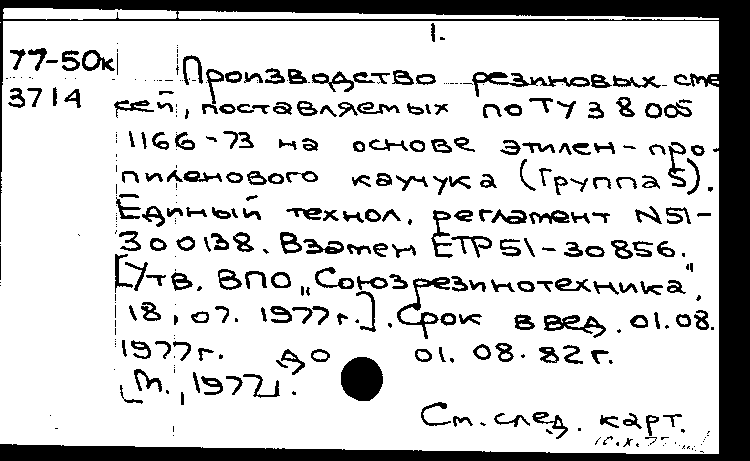 1.
77-50к Производство резиновых сме
3714 сей, поставляемых по ТУ 38 005
1166-73 на основе этилен-про-
пиленового каучука (Группа 5).
Единый технол. регламент N51-
300138. Взамен ЕТР51-30856.
[Утв. ВПО „Союзрезинотехника",
18.07. 1977г.]. Срок введ. 01.08.
1977г. до 01. 08. 82г.
[М., 1977].
См. след. карт.
10.X.77